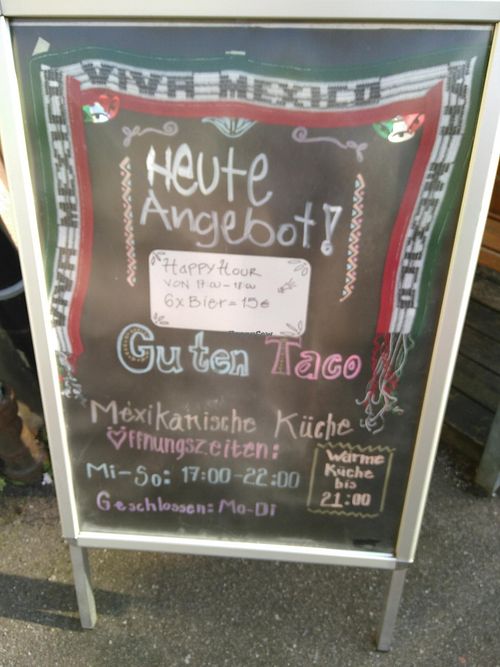 VIVA MEXICO
VIVA MEXICO
VIVA MEXICO
Heute
Angebot!
Happy Hour
VON 17:00-18:00
6x Bier = 15€
Guten Taco
Mexikanische Küche
Öffnungszeiten:
Mi-So: 17:00-22:00
Geschlossen: Mo-Di
Warme
Küche
bis
21:00